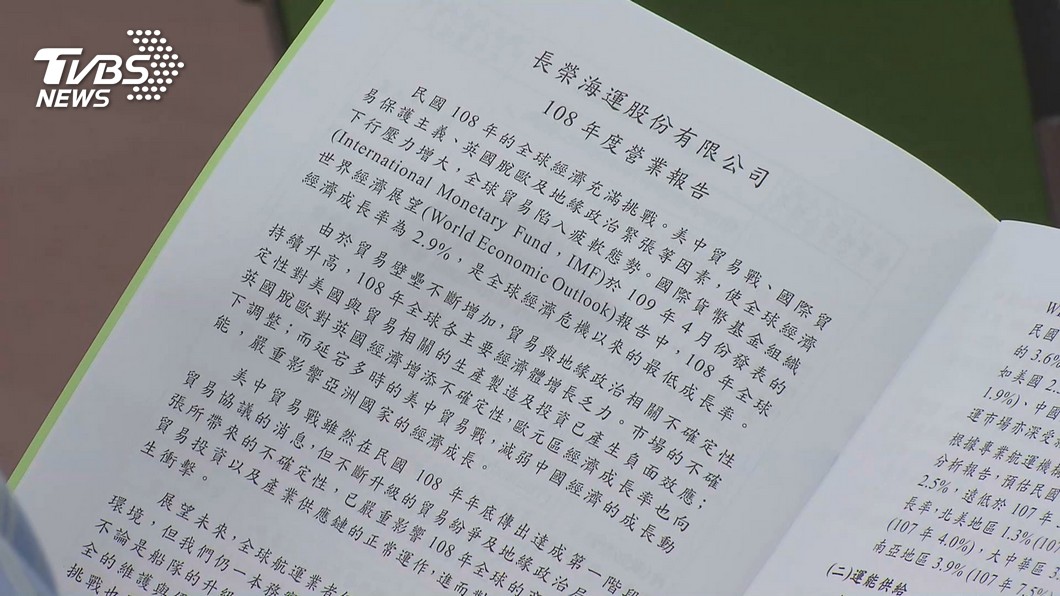 TVBS
NEWS
長榮海運股份有限公司
108 年度營業報告
民國 108 年的全球經濟充滿挑戰。美中貿易戰、國際貿
易保護主義、英國脫歐及地緣政治緊張等因素，使全球經濟
下行壓力增大，全球貿易陷入疲軟態勢。國際貨幣基金組織
(International Monetary Fund，IMF)於 109 年 4 月份發表的
世界經濟展望(World Economic Outlook)報告中，108 年全球
經濟成長率為 2.9%，是全球經濟危機以來的最低成長率。
由於貿易壁壘不斷增加，貿易與地緣政治相關不確定性
持續升高，108 年全球各主要經濟體增長乏力。市場的不確
定性對美國與貿易相關的生產製造及投資已產生負面效應；
英國脫歐對英國經濟增添不確定性，歐元區經濟成長率也向
下調整；而延宕多時的美中貿易戰，減弱中國經濟的成長動
能，嚴重影響亞洲國家的經濟成長。
美中貿易戰雖然在民國 108 年年底傳出達成第一階段
貿易協議的消息，但不斷升級的貿易紛爭及地緣政治局
張所帶來的不確定性，已嚴重影響 108 年全球的
貿易投資以及產業供應鏈的正常運作，進而對
生衝擊。
展望未來，全球航運業者
環境，但我們仍一本務
不論是船隊的升級
全的維護與
挑戰也
民國
的 3.6%
如美國 2.
1.9%)、中國
運市場亦深受
根據專業航運機
分析報告，預估民國
2.5%，遠低於 107 年
長率，北美地區 1.3%(10
(107 年 4.0%)，大中華區 3.
南亞地區 3.9% (107 年 7.5%
(二)運能供給